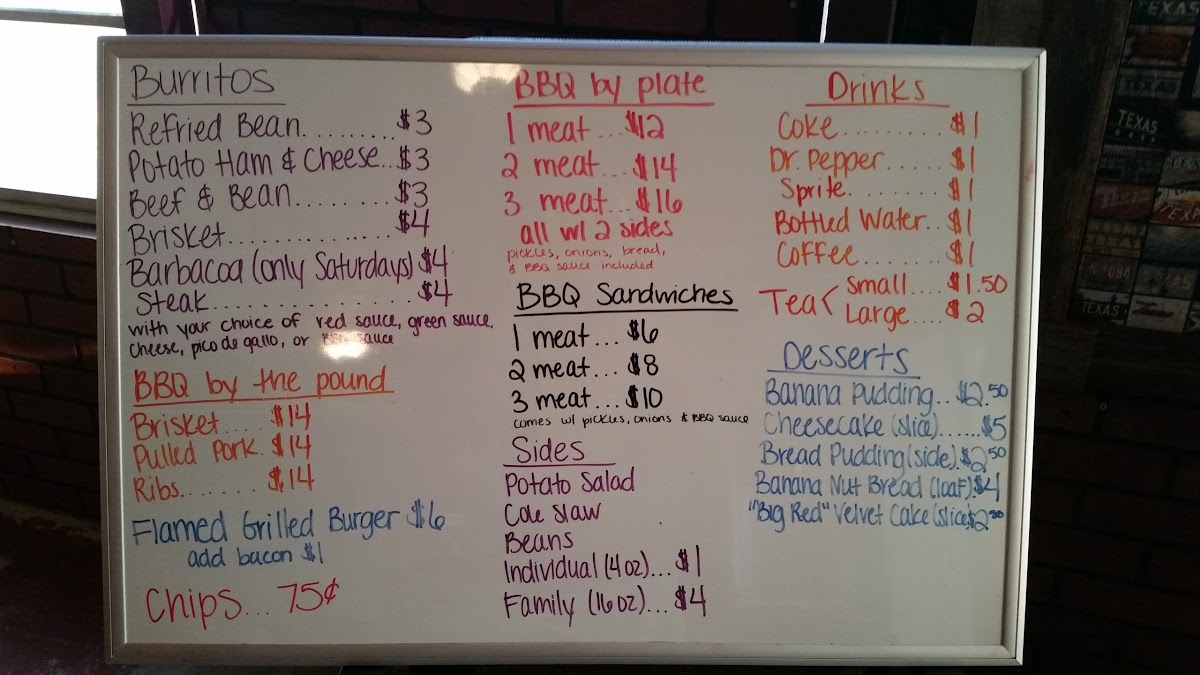 Burritos
Refried Bean.........$3
Potato Ham & Cheese..$3
Beef & Bean.........$3
Brisket..............$4
Barbacoa (only Saturdays) $4
Steak..................$4
with your choice of red sauce, green sauce,
cheese, pico de gallo, or BBQ sauce
BBQ by the pound
Brisket.... $14
Pulled Pork. $14
Ribs....... $14
Flamed Grilled Burger $6
add bacon $1
Chips... 75¢
BBQ by plate
1 meat...$12
2 meat...$14
3 meat...$16
all w/ 2 sides
pickles, onions, bread,
& BBQ sauce included
BBQ Sandwiches
1 meat... $6
2 meat... $8
3 meat... $10
comes w/ pickles, onions & BBQ sauce
Sides
Potato Salad
Cole Slaw
Beans
Individual (4oz)... $1
Family (16oz)... $4
Drinks
Coke..........$1
Dr. Pepper......$1
Sprite.........$1
Bottled Water..$1
Coffee........$1
Tea< Small....$1.50
Large....$2
Desserts
Banana Pudding..$2.50
Cheesecake (slice)......$5
Bread Pudding (side).$2.50
Banana Nut Bread (loaf).$4
"Big Red" Velvet Cake (slice)$2.50
TEXAS
TEXAS
TEXAS
TEXAS
TEXAS